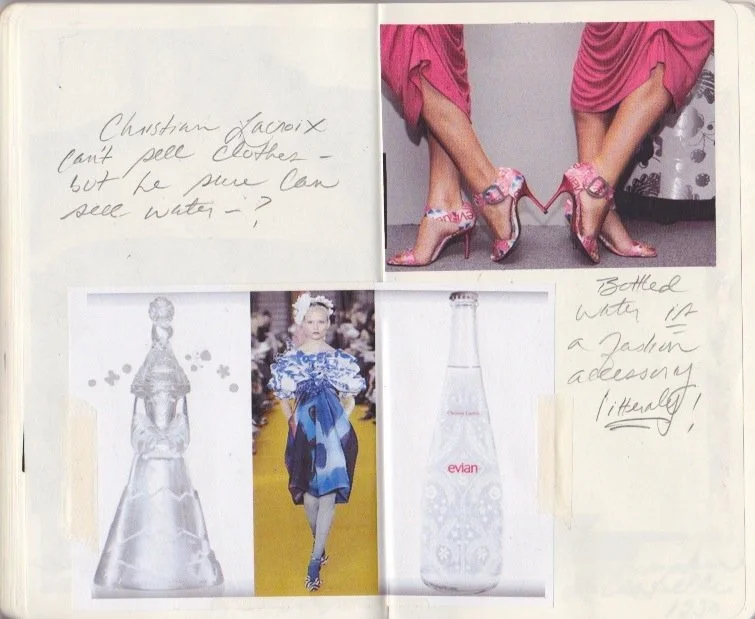 Christian Lacroix
can't sell clothes -
but he sure can
sell water - ?
Bottled
water is
a fashion
accessory
litteraly!
evian